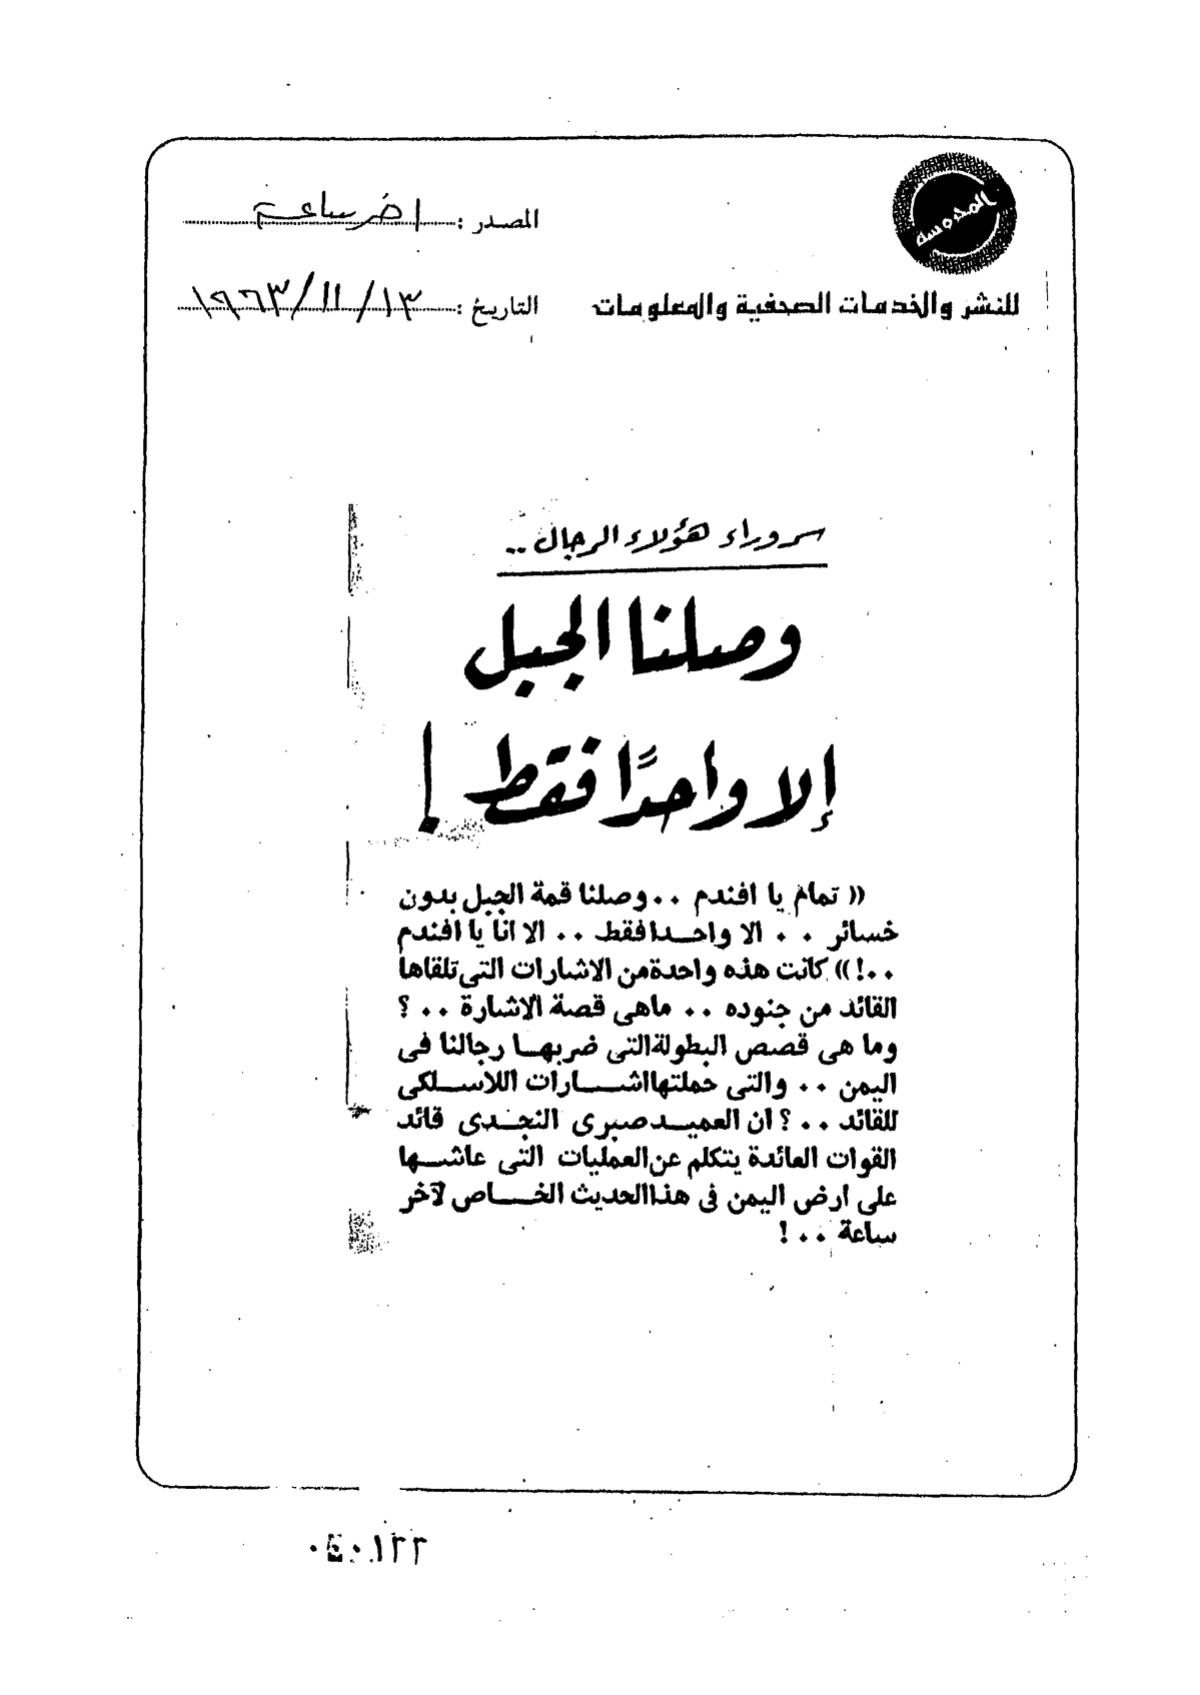 المحروسة
للنشر والخدمات الصحفية والمعلومات
المصدر : اخر ساعة
التاريخ : ١٩٦٣/١١/١٣
سر وراء هؤلاء الرجال ..
وصلنا الجبل
إلا واحدًا فقط !
(( تمام يا افندم .. وصلنا قمة الجبل بدون
خسائر .. الا واحدا فقط .. الا انا يا افندم
..! )) كانت هذه واحدة من الاشارات التى تلقاها
القائد من جنوده .. ماهى قصة الاشارة .. ؟
وما هى قصص البطولة التى ضربها رجالنا فى
اليمن .. والتى حملتها اشارات اللاسلكى
للقائد .. ؟ ان العميد صبرى النجدى قائد
القوات العائدة يتكلم عن العمليات التى عاشها
على ارض اليمن فى هذا الحديث الخاص لآخر
ساعة .. !